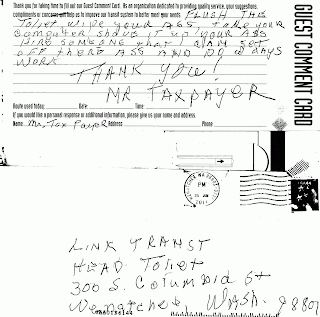 Thank you for taking time to fill out our Guest Comment Card. As an organization dedicated to providing quality service, your suggestions,
compliments or concerns will help us to improve our transit system to better meet your needs. FLUSH THE
Toliet wipe your ASS. take your
Computer shove it up your ASS
HIRE SOMEONE that CAN set
OFF there ASS AND DO A DAYS
WORK
THANK YOU!
MR TAXPAYER
Route used today: Date: Time:
If you would like a personal response or additional information, please give us your name and address.
Name Mr. Tax Payer Address Phone
GUEST COMMENT CARD
PM
2011
LINK TRANST
HEAD Toliet
300 S. Columbia St
Wenatchee, WASH. 98801